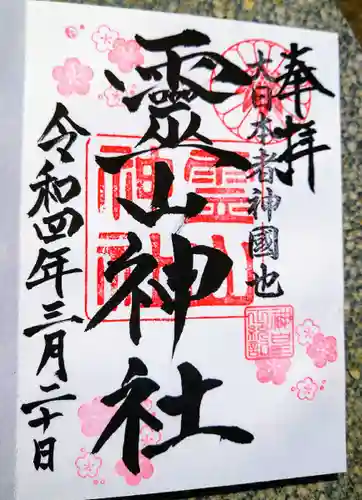 奉拝
大日本者神國也
靈山神社
令和四年三月二十日
霊山
神社